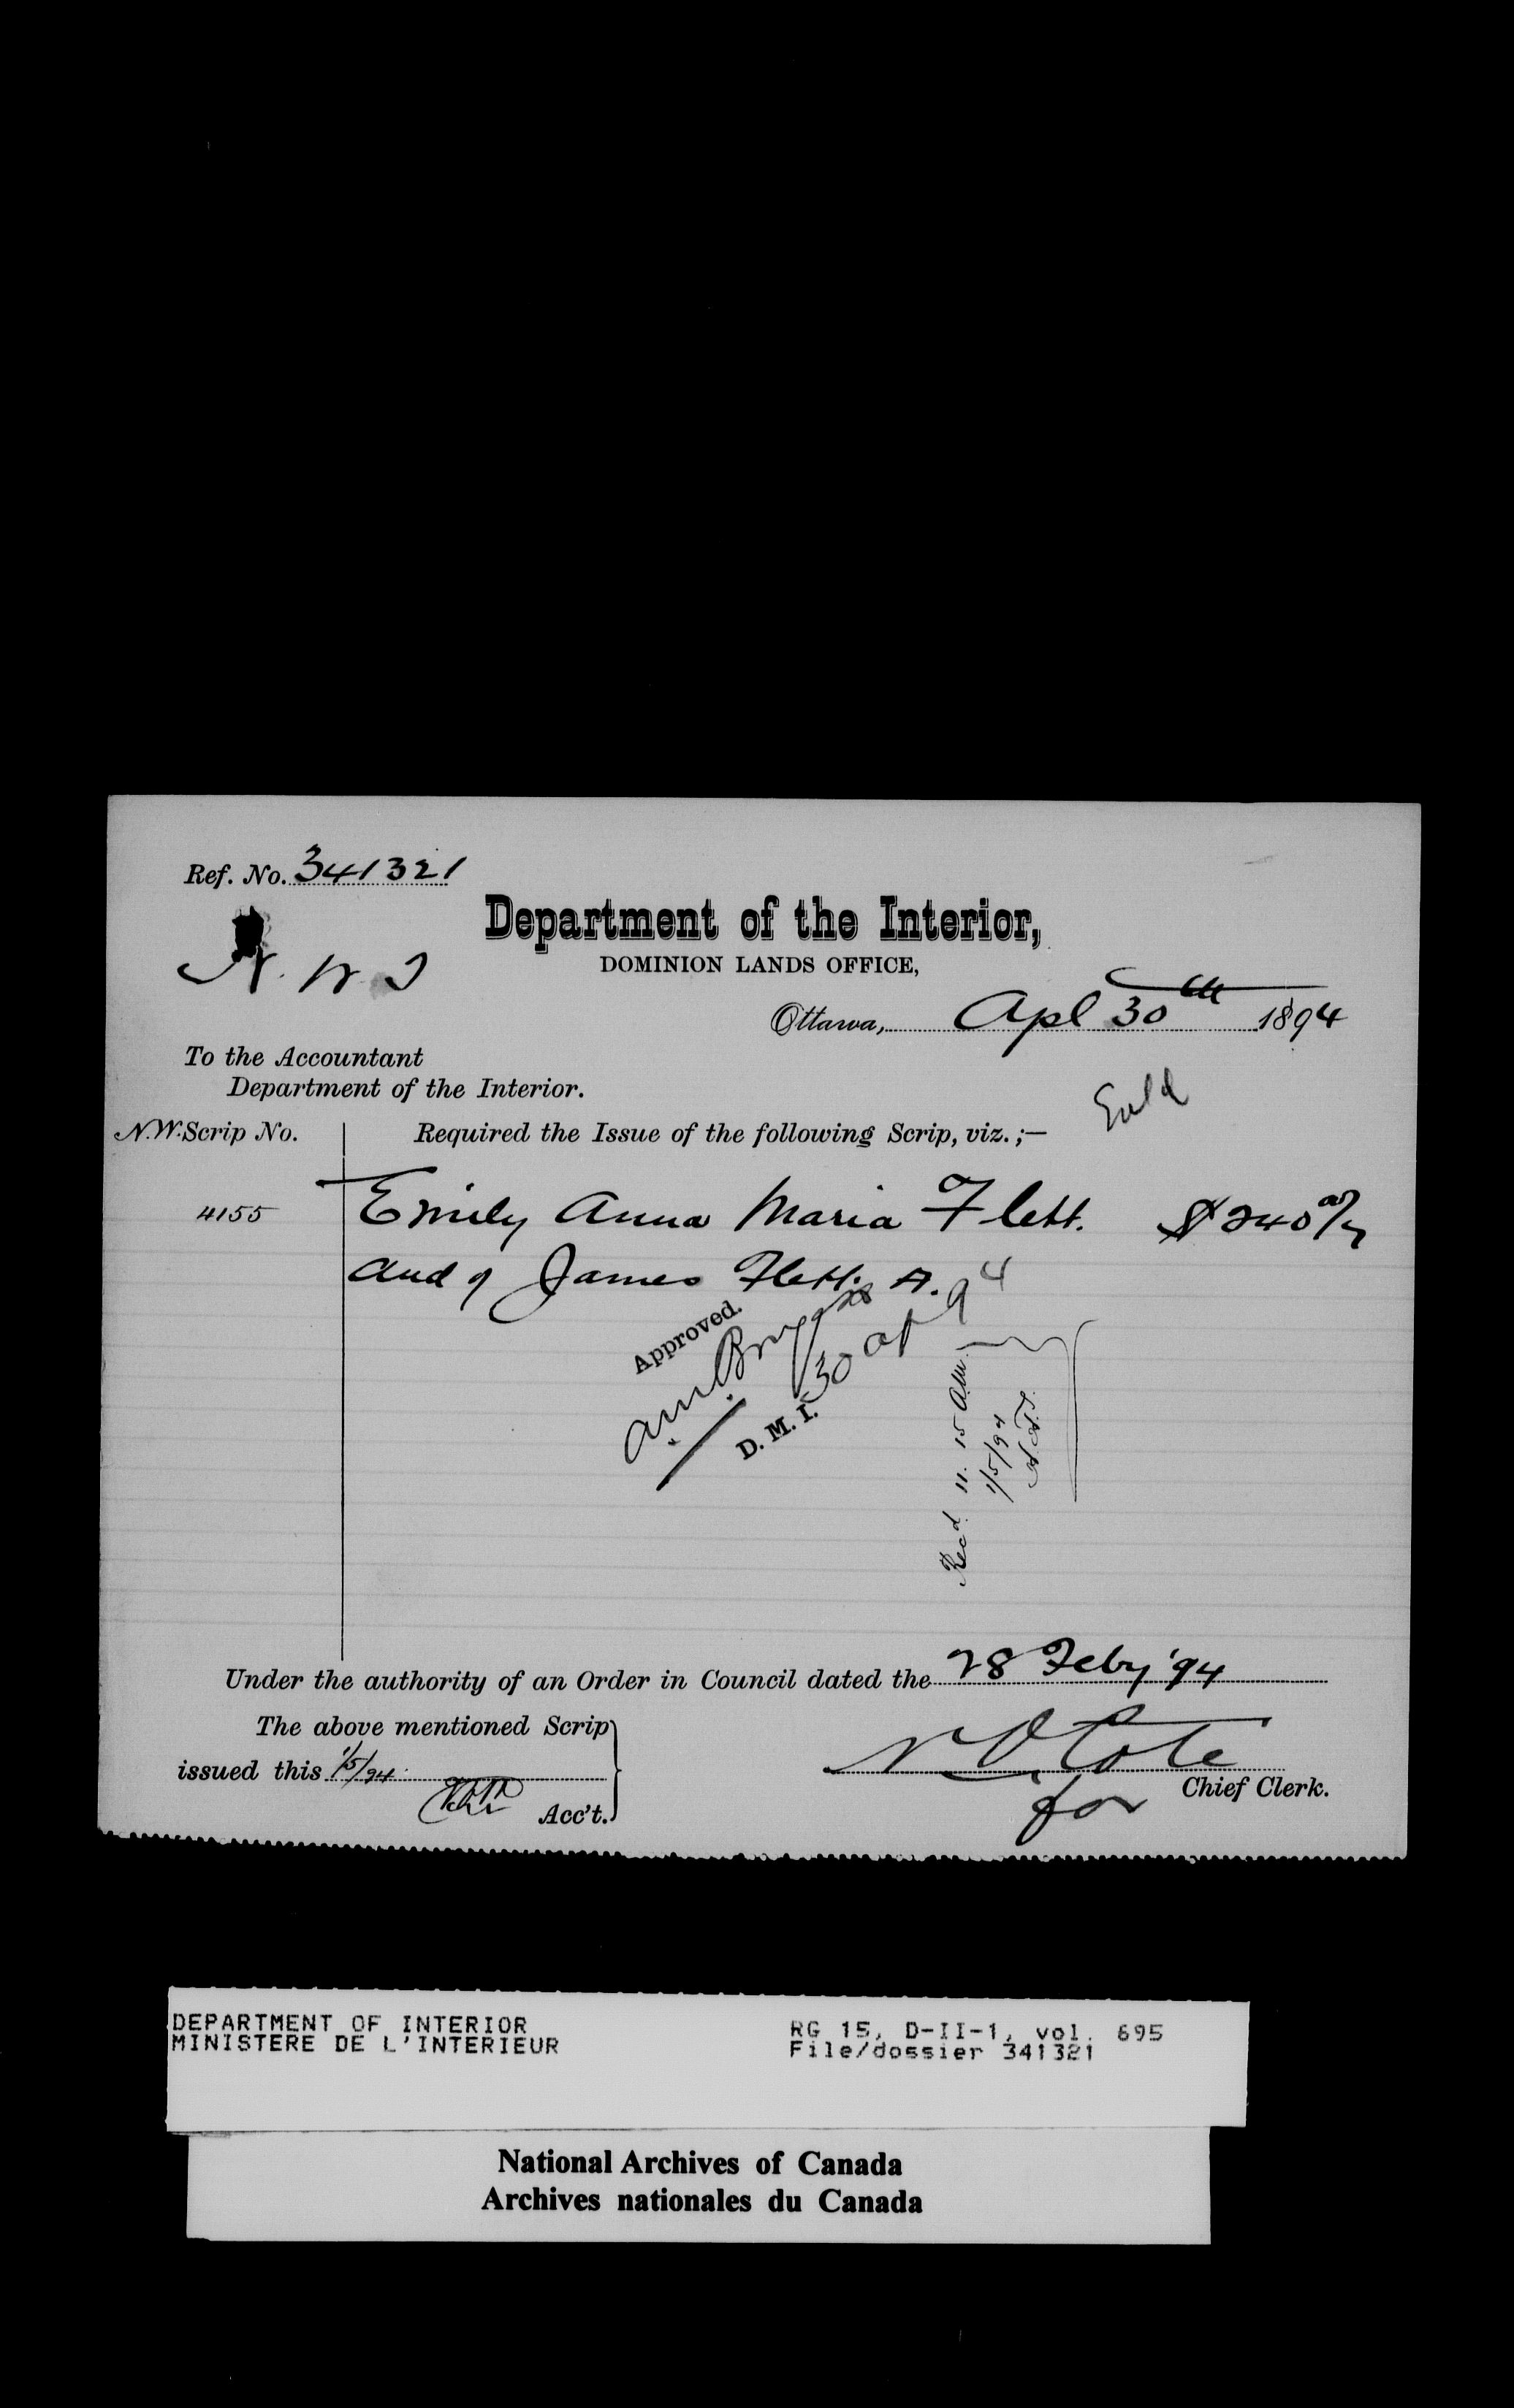 Ref. No. 341321
N. W. T
Department of the Interior,
DOMINION LANDS OFFICE,
Ottawa, Apl 30th 1894
To the Accountant
Department of the Interior.
N.W. Scrip No.
Required the Issue of the following Scrip, viz. ;—
4155
Emily Anna Maria Flett. $240 00/
and of James Flett.
Approved.
30 94
D. M. I.
Recd. 11. 15 A.M.
1/5/94
Under the authority of an Order in Council dated the 28 Feby '94
The above mentioned Scrip
issued this 1/5/94
Acc't.
N O Cote
for Chief Clerk.
DEPARTMENT OF INTERIOR
MINISTERE DE L'INTERIEUR
RG 15, D-II-1, vol. 695
File/dossier 341321
National Archives of Canada
Archives nationales du Canada